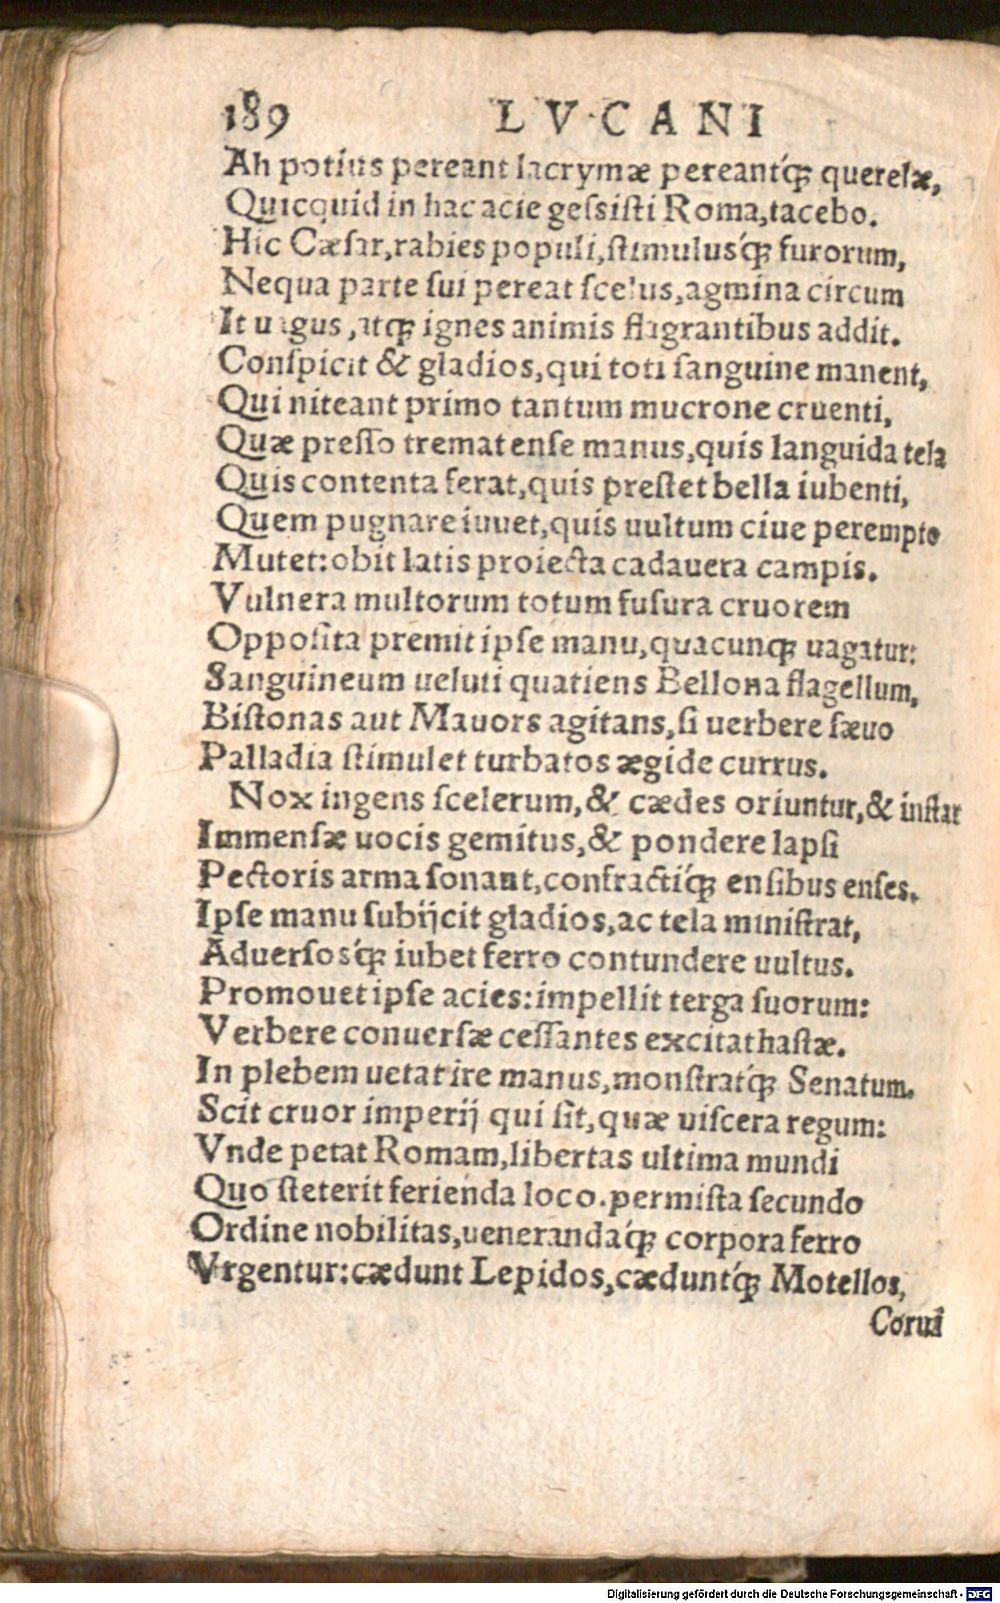 189 LVCANI
Ah potius pereant lacrymæ pereantq́ꝫ querelæ,
Quicquid in hac acie geſsiſti Roma,tacebo.
Hic Cæſar,rabies populi,ſtimulusq́ꝫ furorum,
Nequa parte ſui pereat ſcelus,agmina circum
It uagus ,atqꝫ ignes animis flagrantibus addit.
Conſpicit & gladios,qui toti ſanguine manent,
Qui niteant primo tantum mucrone cruenti,
Quæ preſſo tremat enſe manus,quis languida tela
Quis contenta ferat,quis preſtet bella iubenti,
Quem pugnare iuuet,quis uultum ciue perempto
Mutet:obit latis proiecta cadauera campis.
Vulnera multorum totum fuſura cruorem
Oppoſita premit ipſe manu,quacunqꝫ uagatur:
Sanguineum ueluti quatiens Bellona flagellum,
Biſtonas aut Mauors agitans,ſi uerbere ſæuo
Palladia ſtimulet turbatos ægide currus.
Nox ingens ſcelerum,& cædes oriuntur,& inſtar
Immenſæ uocis gemitus,& pondere lapſi
Pectoris arma ſonant,confractiq́ꝫ enſibus enſes.
Ipſe manu ſubijcit gladios,ac tela miniſtrat,
Aduerſosq́ꝫ iubet ferro contundere uultus.
Promouet ipſe acies:impellit terga ſuorum:
Verbere conuerſæ ceſſantes excitat haſtæ.
In plebem uetat ire manus,monſtratq́ꝫ Senatum.
Scit cruor imperij qui ſit,quæ uiſcera regum:
Vnde petat Romam,libertas ultima mundi
Quo ſteterit ferienda loco.permiſta ſecundo
Ordine nobilitas,uenerandaq́ꝫ corpora ferro
Vrgentur:cædunt Lepidos,cæduntq́ꝫ Motellos,
Corui
Digitalisierung gefördert durch die Deutsche Forschungsgemeinschaft - DFG